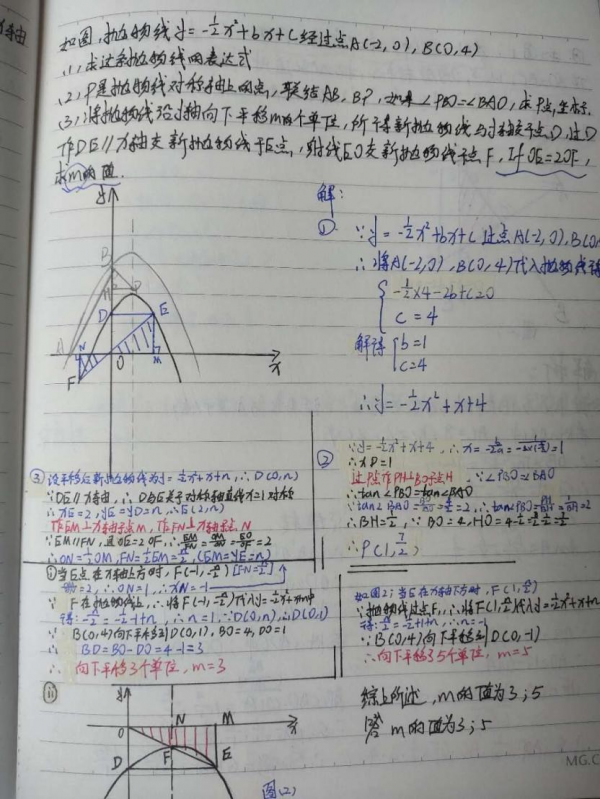 如图,抛物线y=-½x²+bx+c经过点A(-2,0),B(0,4)
(1)求这条抛物线的表达式
(2)P是抛物线对称轴上的点,联结AB、BP,如果∠PBO=∠BAO,求P点坐标.
(3)将抛物线沿y轴向下平移m个单位,所得新抛物线与y轴交于点D,过D
作DE∥x轴交新抛物线于E点,射线EO交新抛物线于点F,If OE=2OF,
求m的值.
解:
①
∵y=-½x²+bx+c过点A(-2,0),B(0,
∴将A(-2,0),B(0,4)代入抛物线得
-½×4-2b+c=0
c=4
解得
b=1
c=4
∴y=-½x²+x+4
y
B
H
P
D
E
A
N
O
M
F
x
②
∵y=-½x²+x+4,∴x=-b/2a=-1/(2×(-½))=1
∴xP=1
过P作PH⊥BO于点H,∵∠PBO=∠BAO
∴tan∠PBO=tan∠BAO
∵tan∠BAO=BO/AO=4/2=2,∴tan∠PBO=PH/BH=1/BH=2
∴BH=½,∵BO=4,HO=4-½=7/2
∴P(1,7/2)
③设平移后新抛物线为y=-½x²+x+n,∴D(0,n)
∵DE∥x轴,∴D与E关于对称轴直线x=1对称
∴xE=2,yE=yD=n,∴E(2,n)
作EM⊥x轴于点M,作FN⊥x轴于点N
∵EM∥FN,且OE=2OF,∴EM/FN=OM/ON=EO/OF=2
∴ON=½OM,FN=½EM=n/2,(EM=yE=n)
①当E点在x轴上方时,F(-1,-n/2)[FN=n/2]
=2,∴ON=1,∴xN=-1
∵F在抛物线上,∴将F(-1,-n/2)代入y=-½x²+x+n中
得:-n/2=-½-1+n,∴n=1,∴D(0,n),∴D(0,1)
∵B(0,4)向下平移到D(0,1),BO=4,DO=1
∴BD=BO-DO=4-1=3
∴向下平移3个单位,m=3
如图2:当E在x轴下方时,F(1,n/2)
∵抛物线过点F,∴将F(1,n/2)代入y=-½x²+x+n
得:n/2=-½+1+n,∴n=-1
∵B(0,4)向下平移到D(0,-1)
∴向下平移5个单位,m=5
(ii)
y
N
M
x
O
D
F
E
图(2)
综上所述,m的值为3;5
答 m的值为3;5
MG.C